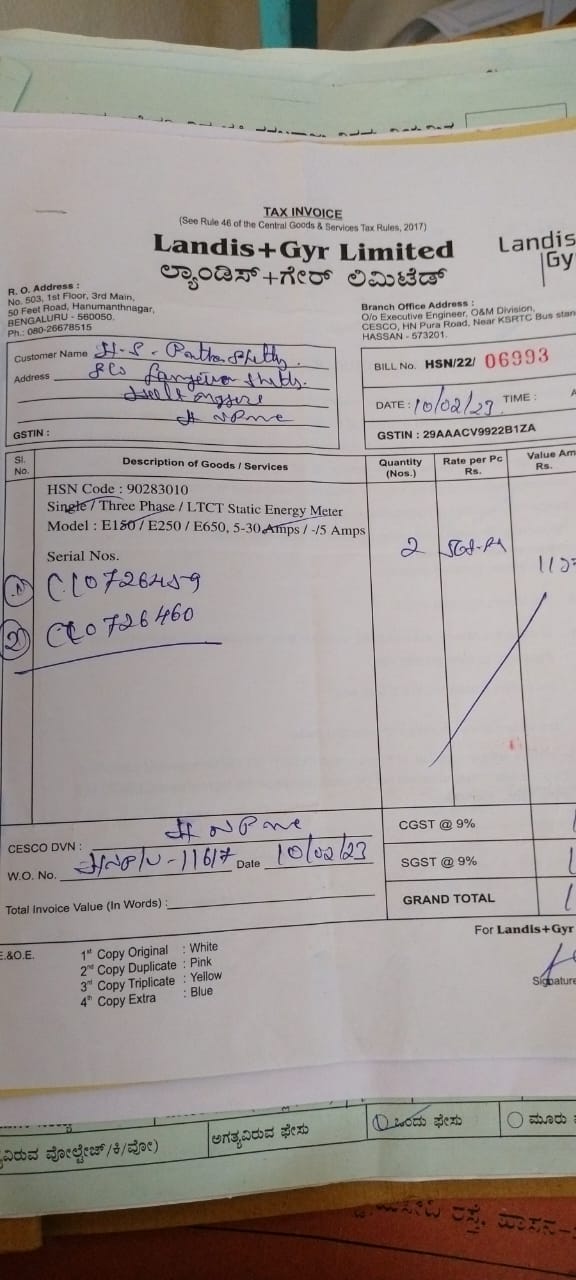 TAX INVOICE
(See Rule 46 of the Central Goods & Services Tax Rules, 2017)
Landis+Gyr Limited
ಲ್ಯಾಂಡಿಸ್+ಗೇರ್ ಲಿಮಿಟೆಡ್
Landis
Gy
R. O. Address :
No. 503, 1st Floor, 3rd Main,
50 Feet Road, Hanumanthnagar,
BENGALURU - 560050.
Ph.: 080-26678515
Branch Office Address :
O/o Executive Engineer, O&M Division,
CESCO, HN Pura Road, Near KSRTC Bus stan
HASSAN - 573201.
Customer Name H-S-
Address
GSTIN :
BILL No. HSN/22/ 06993
DATE : 10/02/23 TIME : A
GSTIN : 29AAACV9922B1ZA
Sl. No. Description of Goods / Services Quantity (Nos.) Rate per Pc Rs. Value Am Rs.
HSN Code : 90283010
Single / Three Phase / LTCT Static Energy Meter
Model : E150 / E250 / E650, 5-30 Amps / -/5 Amps
2
Serial Nos.
1) CL0726459
2) CL0726460
CESCO DVN :
CGST @ 9%
W.O. No. Date 10/02/23
SGST @ 9%
Total Invoice Value (In Words) :
GRAND TOTAL
For Landis+Gyr
E.&O.E.
1st Copy Original : White
2nd Copy Duplicate : Pink
3rd Copy Triplicate : Yellow
4th Copy Extra : Blue
Signature
ವಿರುವ ವೋಲ್ಟೇಜ್/ಕಿ/ವೋ)
ಅಗತ್ಯವಿರುವ ಫೇಸು
ಒಂದು ಫೇಸು
ಮೂರು